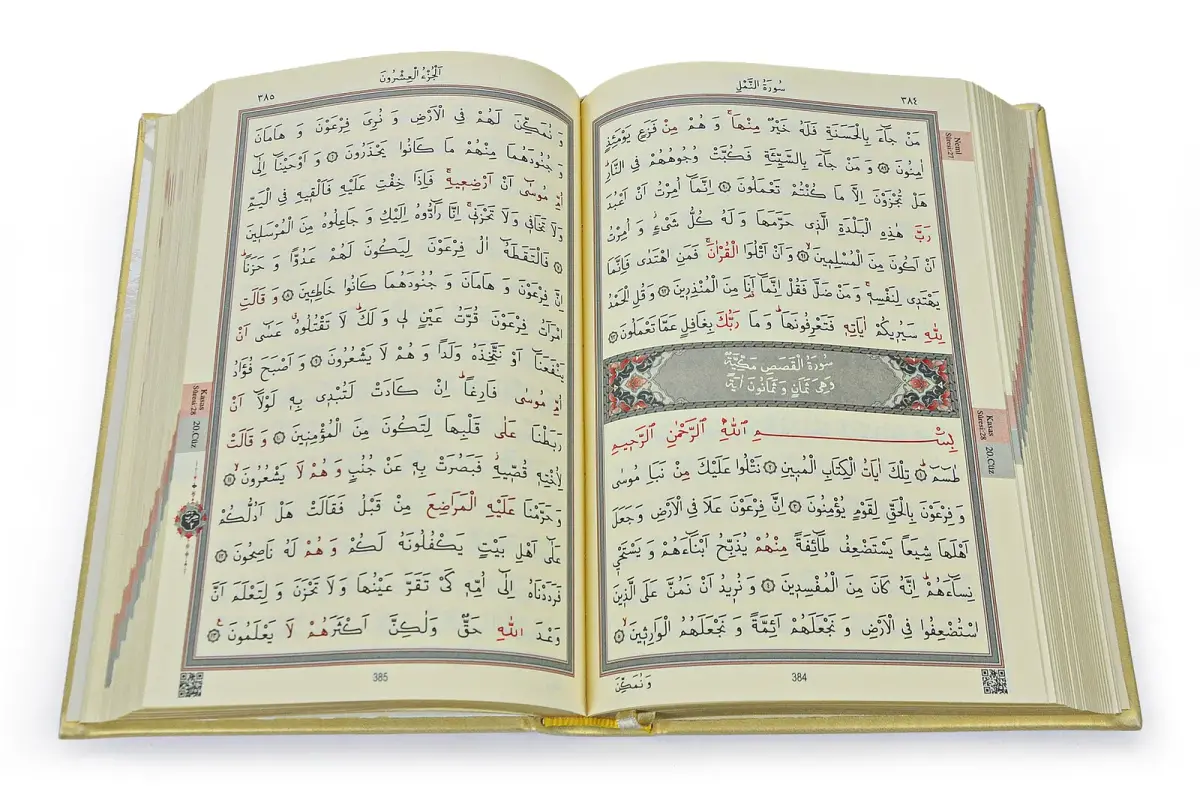 ٣٨٤ سُورَةُ النَّمْلِ
مَنْ جَٓاءَ بِالْحَسَنَةِ فَلَهُ خَيْرٌ مِنْهَاۚ وَ هُمْ مِنْ فَزَعٍ يَوْمَئِذٍ
اٰمِنُونَ ﴿٨٩﴾ وَ مَنْ جَٓاءَ بِالسَّيِّئَةِ فَكُبَّتْ وُجُوهُهُمْ فِي النَّارِۜ
هَلْ تُجْزَوْنَ اِلَّا مَا كُنْتُمْ تَعْمَلُونَ ﴿٩٠﴾ اِنَّمَٓا اُمِرْتُ اَنْ اَعْبُدَ
رَبَّ هٰذِهِ الْبَلْدَةِ الَّذٖي حَرَّمَهَا وَ لَهُ كُلُّ شَيْءٍۘ وَ اُمِرْتُ
اَنْ اَكُونَ مِنَ الْمُسْلِمٖينَۙ ﴿٩١﴾ وَ اَنْ اَتْلُوَا الْقُرْاٰنَۚ فَمَنِ اهْتَدٰى فَاِنَّمَا
يَهْتَدٖي لِنَفْسِهٖۚ وَ مَنْ ضَلَّ فَقُلْ اِنَّمَٓا اَنَا مِنَ الْمُنْذِرٖينَ ﴿٩٢﴾ وَ قُلِ الْحَمْدُ
لِلّٰهِ سَيُرٖيكُمْ اٰيَاتِهٖ فَتَعْرِفُونَهَاۜ وَ مَا رَبُّكَ بِغَافِلٍ عَمَّا تَعْمَلُونَ ﴿٩٣﴾
سُورَةُ الْقَصَصِ مَكِّيَّةٌ
وَهِيَ ثَمَانٍ وَ ثَمَانُونَ اٰيَةً
بِسْمِ اللّٰهِ الرَّحْمٰنِ الرَّحٖيمِ
طٰسٓمٓ ﴿١﴾ تِلْكَ اٰيَاتُ الْكِتَابِ الْمُبٖينِ ﴿٢﴾ نَتْلُوا عَلَيْكَ مِنْ نَبَاِ مُوسٰى
وَ فِرْعَوْنَ بِالْحَقِّ لِقَوْمٍ يُؤْمِنُونَ ﴿٣﴾ اِنَّ فِرْعَوْنَ عَلَا فِي الْاَرْضِ وَ جَعَلَ
اَهْلَهَا شِيَعًا يَسْتَضْعِفُ طَٓائِفَةً مِنْهُمْ يُذَبِّحُ اَبْنَٓاءَهُمْ وَ يَسْتَحْيٖ
نِسَٓاءَهُمْۜ اِنَّهُ كَانَ مِنَ الْمُفْسِدٖينَ ﴿٤﴾ وَ نُرٖيدُ اَنْ نَمُنَّ عَلَى الَّذٖينَ
اسْتُضْعِفُوا فِي الْاَرْضِ وَ نَجْعَلَهُمْ اَئِمَّةً وَ نَجْعَلَهُمُ الْوَارِثٖينَۙ ﴿٥﴾
وَ نُمَكِّنَ
384
Neml
Sûresi:27
Kasas
Sûresi:28
20.Cüz
اَلْجُزْءُ الْعِشْرُونَ ٣٨٥
وَ نُمَكِّنَ لَهُمْ فِي الْاَرْضِ وَ نُرِيَ فِرْعَوْنَ وَ هَامَانَ
وَ جُنُودَهُمَا مِنْهُمْ مَا كَانُوا يَحْذَرُونَ ﴿٦﴾ وَ اَوْحَيْنَٓا اِلٰٓى
اُمِّ مُوسٰٓى اَنْ اَرْضِعٖيهِۚ فَاِذَا خِفْتِ عَلَيْهِ فَاَلْقٖيهِ فِي الْيَمِّ
وَلَا تَخَافٖي وَلَا تَحْزَنٖيۚ اِنَّا رَٓادُّوهُ اِلَيْكِ وَ جَاعِلُوهُ مِنَ الْمُرْسَلٖينَ
﴿٧﴾ فَالْتَقَطَهُٓ اٰلُ فِرْعَوْنَ لِيَكُونَ لَهُمْ عَدُوًّا وَ حَزَنًاۜ
اِنَّ فِرْعَوْنَ وَ هَامَانَ وَ جُنُودَهُمَا كَانُوا خَاطِـٖٔينَ ﴿٨﴾ وَ قَالَتِ
امْرَاَتُ فِرْعَوْنَ قُرَّتُ عَيْنٍ لٖي وَ لَكَۜ لَا تَقْتُلُوهُۗ عَسٰٓى اَنْ
يَنْفَعَنَٓا اَوْ نَتَّخِذَهُ وَلَدًا وَ هُمْ لَا يَشْعُرُونَ ﴿٩﴾ وَ اَصْبَحَ فُؤٰادُ
اُمِّ مُوسٰى فَارِغًاۜ اِنْ كَادَتْ لَتُبْدٖي بِهٖ لَوْلَٓا اَنْ
رَبَطْنَا عَلٰى قَلْبِهَا لِتَكُونَ مِنَ الْمُؤْمِنٖينَ ﴿١٠﴾ وَ قَالَتْ
لِاُخْتِهٖ قُصّٖيهِۘ فَبَصُرَتْ بِهٖ عَنْ جُنُبٍ وَ هُمْ لَا يَشْعُرُونَۙ ﴿١١﴾
وَ حَرَّمْنَا عَلَيْهِ الْمَرَاضِعَ مِنْ قَبْلُ فَقَالَتْ هَلْ اَدُلُّكُمْ
عَلٰٓى اَهْلِ بَيْتٍ يَكْفُلُونَهُ لَكُمْ وَ هُمْ لَهُ نَاصِحُونَ ﴿١٢﴾
فَرَدَدْنَاهُ اِلٰٓى اُمِّهٖ كَيْ تَقَرَّ عَيْنُهَا وَ لَا تَحْزَنَ وَ لِتَعْلَمَ اَنَّ
وَعْدَ اللّٰهِ حَقٌّ وَلٰكِنَّ اَكْثَرَهُمْ لَا يَعْلَمُونَ۟ ﴿١٣﴾
385
Kasas
Sûresi:28
20.Cüz